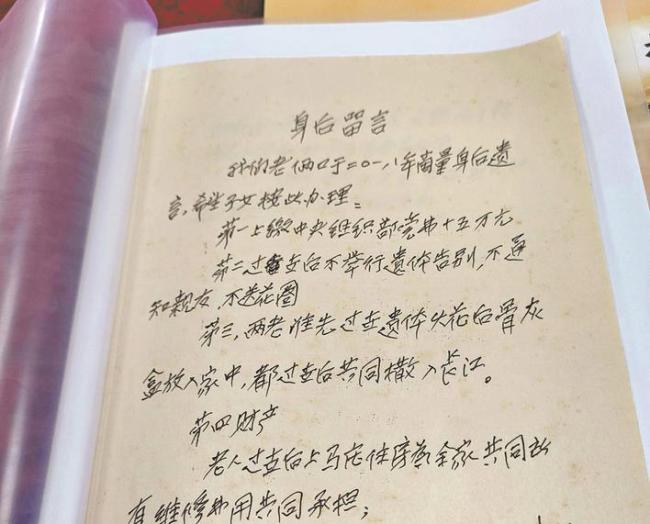 身后留言
我们老俩口于二0一八年商量身后遗
言,希望子女按此办理:
第一上缴中央组织部党费十五万元
第二过世后不举行遗体告别,不通
知亲友,不送花圈
第三,两老谁先过世遗体火花后骨灰
盒放入家中,都过世后共同撒入长江。
第四财产
老人过世后上马庄住房各家共同所
有维修费用共同承担;